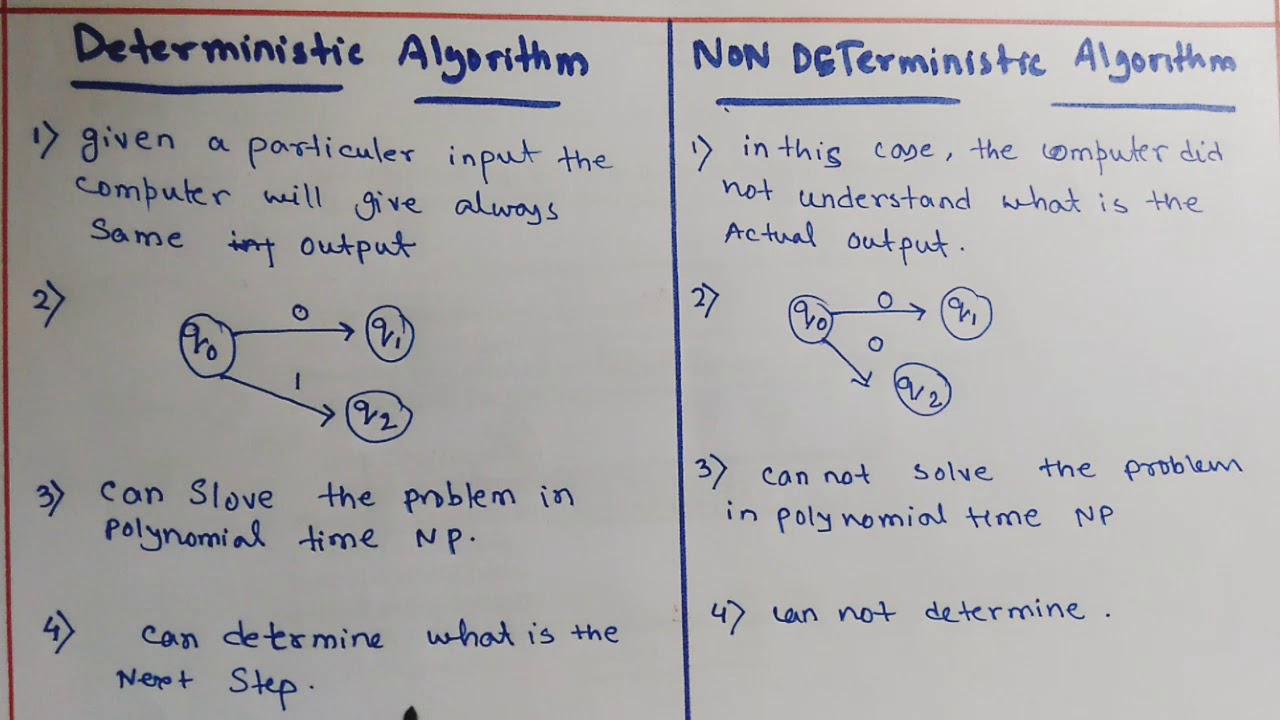 Deterministic Algorithm
1) given a particuler input the
computer will give always
Same output
2)
q0 0 q1
1
q2
3) can Slove the problem in
polynomial time NP.
4) can determine what is the
Next Step.
NON DETerministic Algorithm
1) in this case, the computer did
not understand what is the
Actual output.
2)
q0 0 q1
0
q2
3) can not solve the problem
in polynomial time NP
4) can not determine.